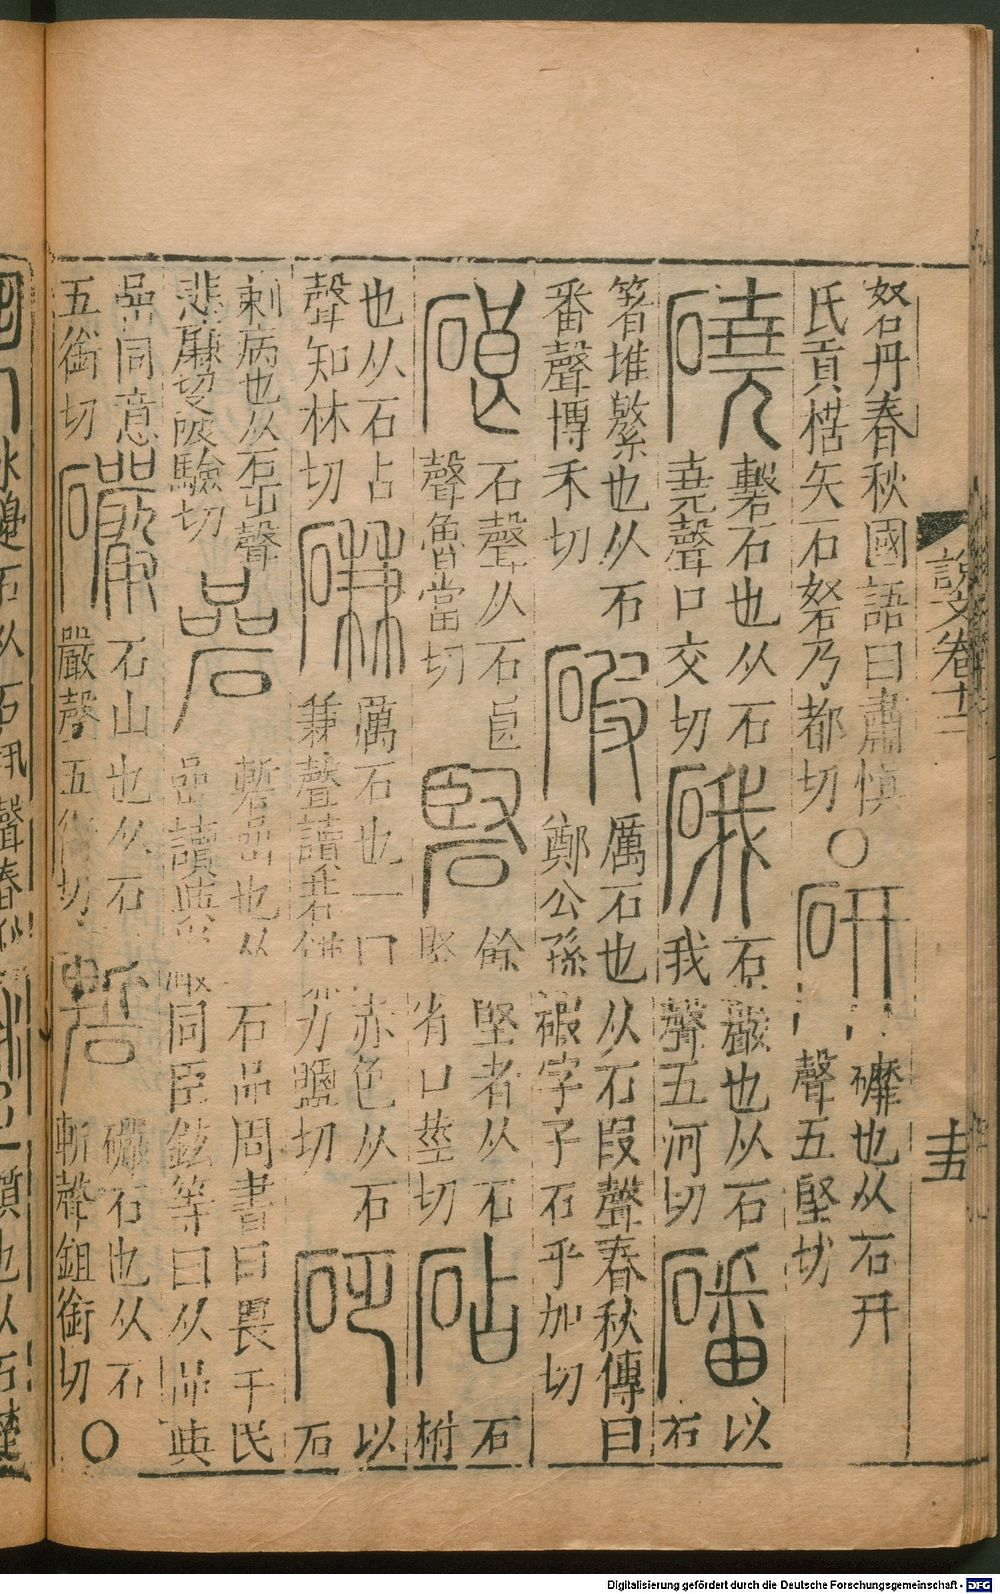 砮丹春秋國語曰肅慎
氏貢楛矢石砮乃都切〇研礳也从石幵
聲五堅切
磽磬石也从石
堯聲口交切硪石巖也从石
我聲五河切磻以石
箸堆繁也从石
番聲博禾切碬厲石也从石叚聲春秋傳曰
鄭公孫碬字子石乎加切
硠石聲从石㫐
聲魯當切硻餘堅者从石
堅省口莖切砧石柎
也从石占
聲知林切磏厲石也一曰赤色从石
兼聲讀若鎌力鹽切砭以石
刺病也从石乏聲
悲廉切又方驗切碞磛嵒也从石品周書曰畏于民
嵒讀與巖同臣鉉等曰从品與
嵒同意
五銜切礹石山也从石
嚴聲五銜切磛礹石也从石
斬聲鉏銜切〇
說文卷十一
十五
Digitalisierung gefördert durch die Deutsche Forschungsgemeinschaft - DFG